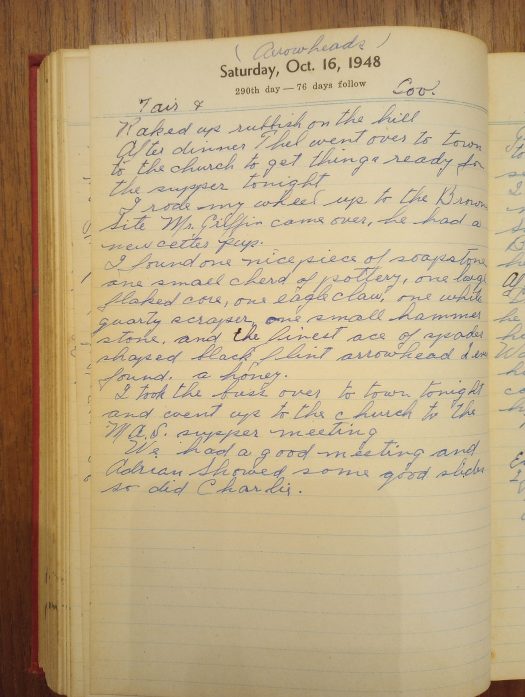 (Arrowheads)
Saturday, Oct. 16, 1948
290th day — 76 days follow
Fair & Cool.
Raked up rubbish on the hill
After dinner Thel went over to town
to the church to get things ready for
the supper tonight
I rode my wheel up to the Brown
site Mr. Griffin came over, he had a
new cetter pup.
I found one nice piece of soapstone
one small cherd of pottery, one large
flaked core, one eagle claw, one white
quartz scraper one small hammer
stone, and the finest ace of spades
shaped black flint arrowhead I ever
found. a honey.
I took the buss over to town tonight
and went up to the church to the
M.A.S. supper meeting
We had a good meeting and
Adrian showed some good slides
so did Charlie.